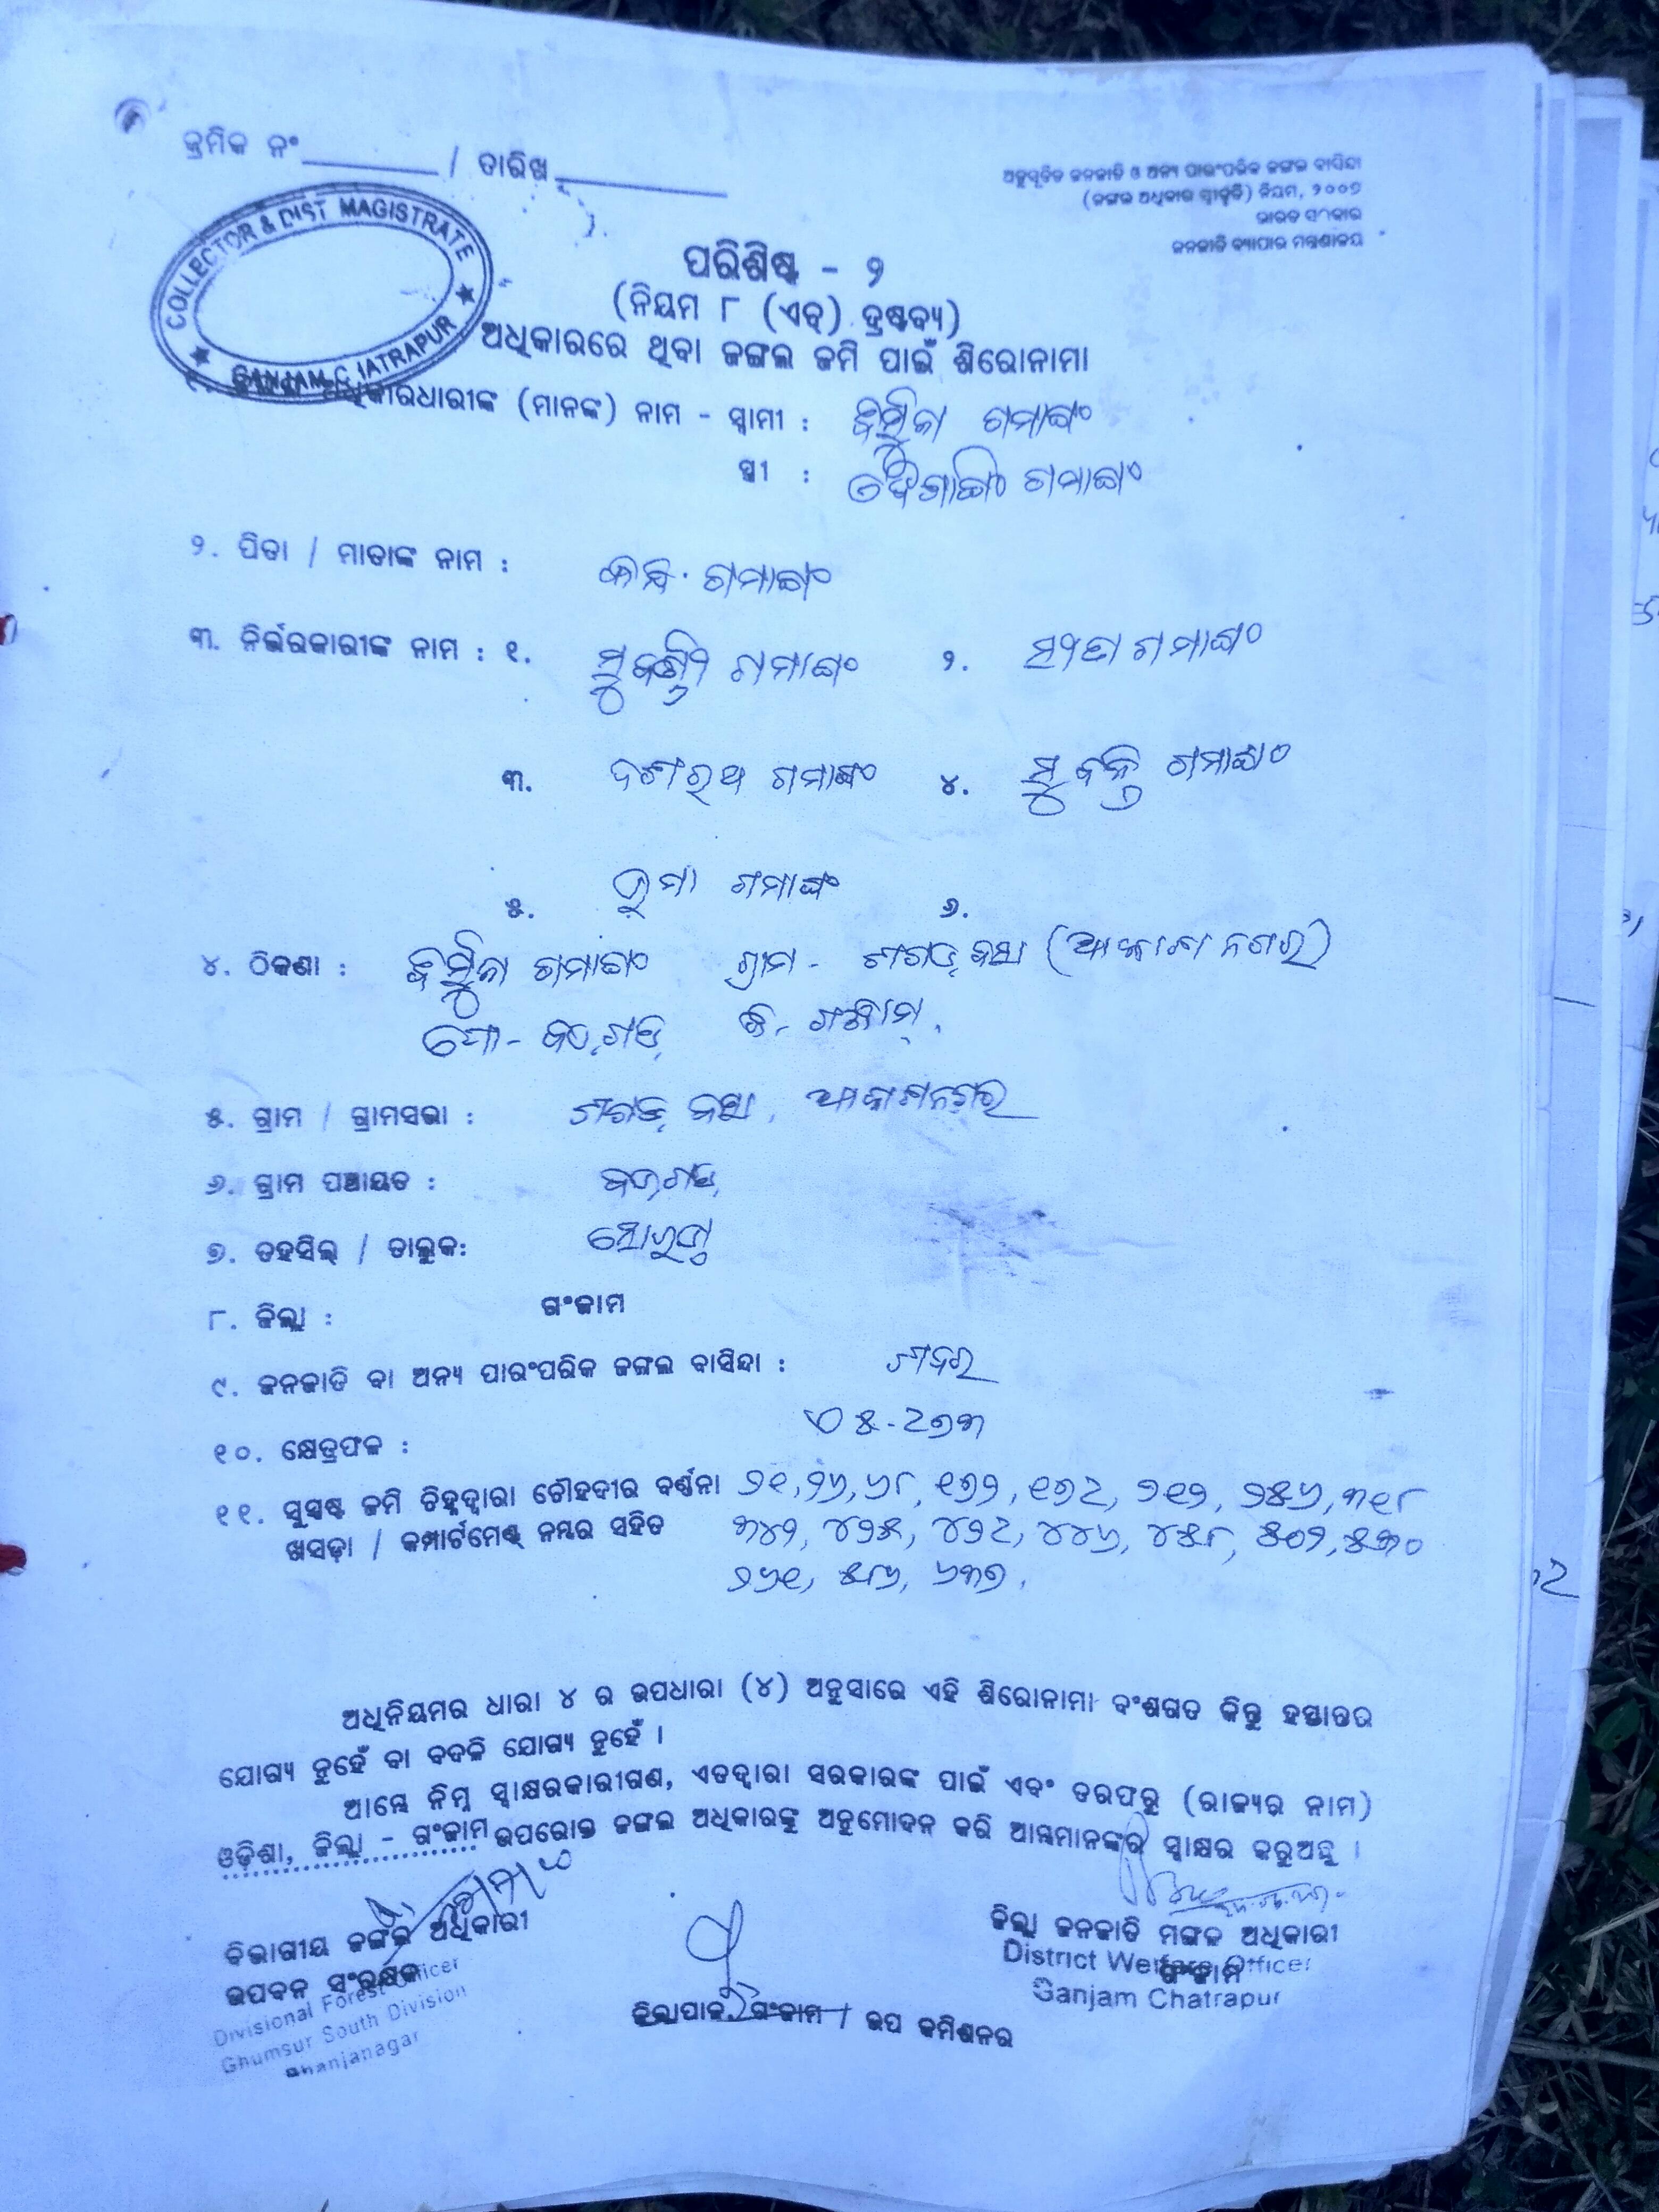 କ୍ରମିକ ନଂ / ତାରିଖ
ଅନୁସୂଚିତ ଜନଜାତି ଓ ଅନ୍ୟ ପାରଂପରିକ ଜଙ୍ଗଲ ବାସିନ୍ଦା
(ଜଙ୍ଗଲ ଅଧିକାର ସ୍ୱୀକୃତି) ନିୟମ, ୨୦୦୭
ଭାରତ ସରକାର
ଜନଜାତି ବ୍ୟାପାର ମନ୍ତ୍ରଣାଳୟ
COLLECTOR & DIST MAGISTRATE
GANJAM
ପରିଶିଷ୍ଟ - ୨
(ନିୟମ ୮ (ଏଚ୍) ଦ୍ରଷ୍ଟବ୍ୟ)
ଅଧିକାରରେ ଥିବା ଜଙ୍ଗଲ ଜମି ପାଇଁ ଶିରୋନାମା
ଅଧିକାରଧାରୀଙ୍କ (ମାନଙ୍କ) ନାମ - ସ୍ୱାମୀ : ଗମାଙ୍ଗଂ
ସ୍ତ୍ରୀ : ଗମାଙ୍ଗଂ
୨. ପିତା / ମାତାଙ୍କ ନାମ : ଗମାଙ୍ଗଂ
୩. ନିର୍ଭରକାରୀଙ୍କ ନାମ : ୧. ଗମାଙ୍ଗଂ ୨. ଗମାଙ୍ଗଂ
୩. ଦଶରଥ ଗମାଙ୍ଗଂ ୪. ଗମାଙ୍ଗଂ
୫. ଗମାଙ୍ଗଂ ୬.
୪. ଠିକଣା : ଗମାଙ୍ଗଂ ଗ୍ରାମ - (ଆକାଶ ନଗର)
ପୋ - ବଡ଼ଗଡ଼ ଜି - ଗଞ୍ଜାମ୍
୫. ଗ୍ରାମ / ଗ୍ରାମସଭା : ଆକାଶନଗର
୬. ଗ୍ରାମ ପଞ୍ଚାୟତ : ବଡ଼ଗଡ଼
୭. ତହସିଲ୍ / ତାଲୁକ: ସୋରଡ଼ା
୮. ଜିଲ୍ଲା : ଗଂଜାମ
୯. ଜନଜାତି ବା ଅନ୍ୟ ପାରଂପରିକ ଜଙ୍ଗଲ ବାସିନ୍ଦା : ଶବର
୧୦. କ୍ଷେତ୍ରଫଳ : ଏ ୫-୨୭୩
୧୧. ସୁସ୍ପଷ୍ଟ ଜମି ଚିହ୍ନଦ୍ୱାରା ଚୌହଦୀର ବର୍ଣ୍ଣନା ୨୧, ୨୬, ୬୮, ୧୭୨, ୨୫୬, ୩୧୮
ଖସଡ଼ା / କମ୍ପାର୍ଟମେଣ୍ଟ୍ ନମ୍ବର ସହିତ ୩୪୨, ୪୨୫, ୪୪୬, ୪୫୮, ୫୦୨, ୫୩୦
୨୬୧, ୫୮୬, ୬୩୭,
ଅଧିନିୟମର ଧାରା ୪ ର ଉପଧାରା (୪) ଅନୁସାରେ ଏହି ଶିରୋନାମା ବଂଶଗତ କିନ୍ତୁ ହସ୍ତାନ୍ତର
ଯୋଗ୍ୟ ନୁହେଁ ବା ବଦଳି ଯୋଗ୍ୟ ନୁହେଁ ।
ଆମ୍ଭେ ନିମ୍ନ ସ୍ୱାକ୍ଷରକାରୀଗଣ, ଏତଦ୍ୱାରା ସରକାରଙ୍କ ପାଇଁ ଏବଂ ତରଫରୁ (ରାଜ୍ୟର ନାମ)
ଓଡ଼ିଶା, ଜିଲ୍ଲା - ଗଂଜାମ ଉପରୋକ୍ତ ଜଙ୍ଗଲ ଅଧିକାରଙ୍କୁ ଅନୁମୋଦନ କରି ଆମ୍ଭମାନଙ୍କର ସ୍ୱାକ୍ଷର କରୁଅଛୁ ।
ବିଭାଗୀୟ ଜଙ୍ଗଲ ଅଧିକାରୀ
ଉପବନ ସଂରକ୍ଷକ
Divisional Forest Officer
Ghumsur South Division
Bhanjanagar
ଜିଲ୍ଲାପାଳ, ଗଂଜାମ / ଉପ କମିଶନର
ଜିଲ୍ଲା ଜନଜାତି ମଙ୍ଗଳ ଅଧିକାରୀ
ଗଂଜାମ
District Welfare Officer
Ganjam Chatrapur